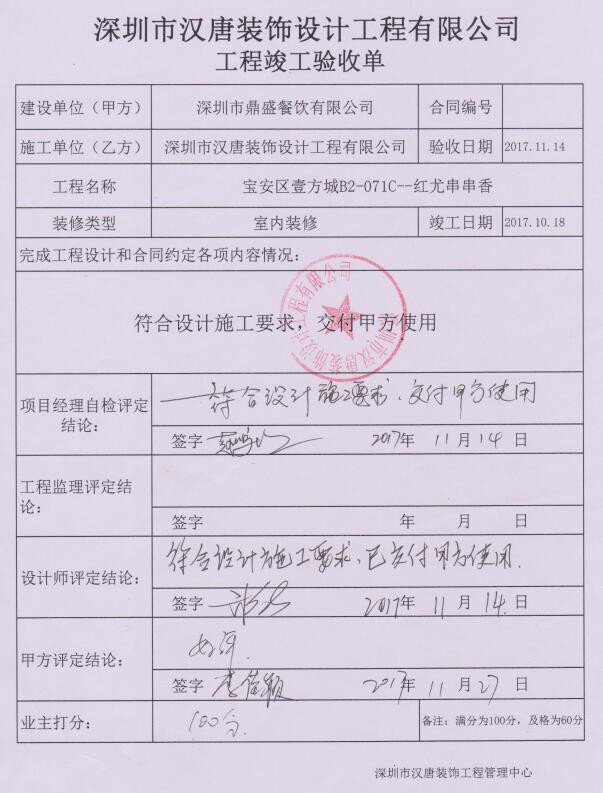 深圳市汉唐装饰设计工程有限公司
工程竣工验收单
建设单位（甲方） 深圳市鼎盛餐饮有限公司 合同编号
施工单位（乙方） 深圳市汉唐装饰设计工程有限公司 验收日期 2017.11.14
工程名称 宝安区壹方城B2-071C--红尤串串香
装修类型 室内装修 竣工日期 2017.10.18
完成工程设计和合同约定各项内容情况：
深圳市汉唐装饰设计工程有限公司
符合设计施工要求，交付甲方使用
项目经理自检评定结论： 符合设计施工要求、交付甲方使用
签字 2017年 11月 14日
工程监理评定结论：
签字 年 月 日
设计师评定结论： 符合设计施工要求、已交付甲方使用.
签字 2017年 11月 14.日
甲方评定结论：
签字 2017年 11月 27日
业主打分： 100分. 备注：满分为100分，及格为60分
深圳市汉唐装饰工程管理中心